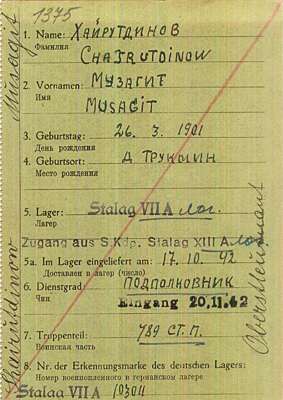 1375
Musagit
1. Name: ХАЙРУТДИНОВ
Фамилия
CHAJRUTDINOW
2. Vornamen: МУЗАГИТ
Имя
MUSAGIT
3. Geburtstag: 26. 3. 1901
День рождения
4. Geburtsort: Д
Место рождения
5. Lager: Stalag VII A лаг.
Лагер
Zugang aus S.Kdp. Stalag XIII A
5a. Im Lager eingeliefert am: 17. 10. 42
Доставлен в лагер (число)
6. Dienstgrad: ПОДПОЛКОВНИК
Чин
Eingang 20.11.42
7. Truppenteil: 789 СТ. П.
Воинская часть
8. Nr. der Erkennungsmarke des deutschen Lagers:
Номер военнопленного в германском лагере
Stalag VII A
Oberstleutnant